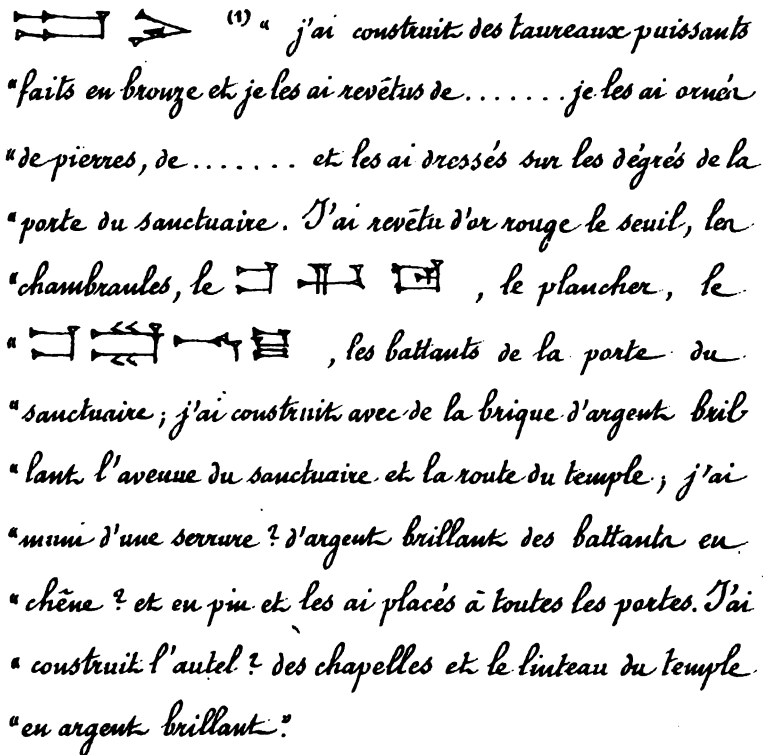 (1) " j'ai construit des taureaux puissants
"faits en bronze et je les ai revêtus de ........ je les ai ornés
"de pierres, de ....... et les ai dressés sur les dégrés de la
"porte du sanctuaire. J'ai revêtu d'or rouge le seuil, les
"chambranles, le , le plancher, le
" , les battants de la porte du
"sanctuaire ; j'ai construit avec de la brique d'argent bril
"lant l'avenue du sanctuaire et la route du temple ; j'ai
"muni d'une serrure ? d'argent brillant des battants en
"chêne ? et en pin et les ai placés à toutes les portes. J'ai
" construit l'autel ? des chapelles et le linteau du temple
"en argent brillant."